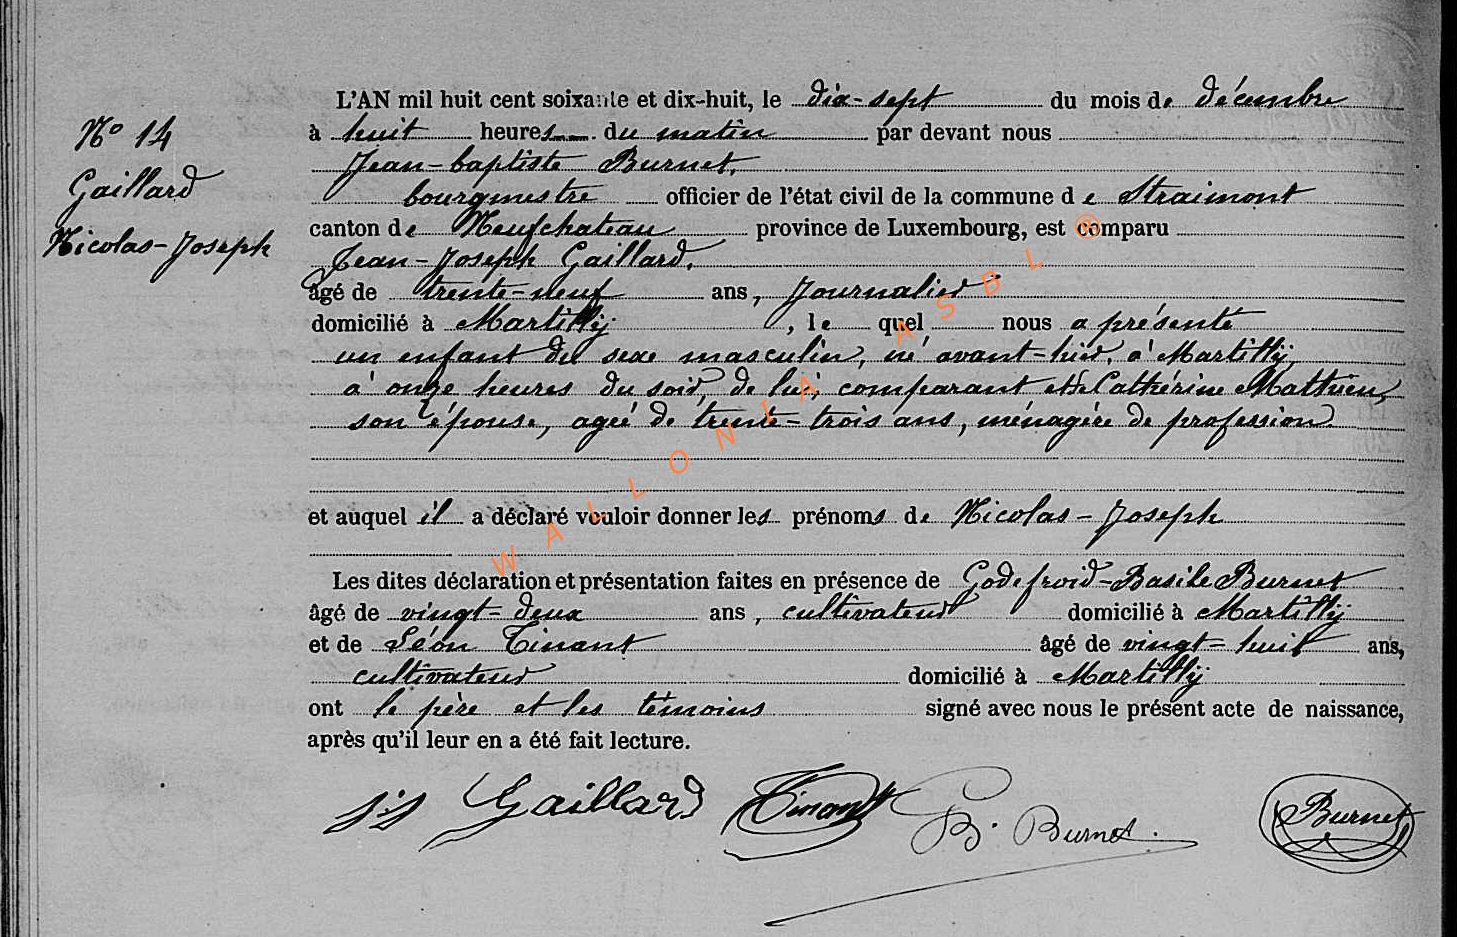 N° 14
Gaillard
Nicolas-Joseph
L'AN mil huit cent soixante et dix-huit, le dix-sept du mois de décembre
à huit heures du matin par devant nous
Jean-baptiste Burnet,
bourgmestre officier de l'état civil de la commune de Straimont
canton de Neufchateau province de Luxembourg, est comparu
Jean-Joseph Gaillard,
âgé de trente-neuf ans, Journalier
domicilié à Martilly, lequel nous a présenté
un enfant du sexe masculin, né avant-hier, à Martilly,
à onze heures du soir, de lui comparant et de Cathérine Mathieu,
son épouse, ageé de trente-trois ans, ménagère de profession
et auquel il a déclaré vouloir donner les prénoms de Nicolas-Joseph
Les dites déclaration et présentation faites en présence de Godefroid-Basile Burnet
âgé de vingt-deux ans, cultivateur domicilié à Martilly
et de Léon Tinant âgé de vingt-huit ans,
cultivateur domicilié à Martilly
ont le père et les témoins signé avec nous le présent acte de naissance,
après qu'il leur en a été fait lecture.
JJ Gaillard Tinant B. Burnet. Burnet
WALLONIA ASBL ®